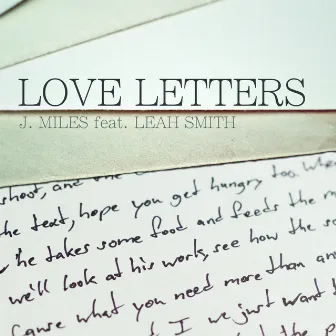 LOVE LETTERS
J. MILES feat. LEAH SMITH
shoot, and one
the text, hope you get hungry too when
he takes some food and feeds the
we'll look at his work, see how the
cause what you need more than
I we just want